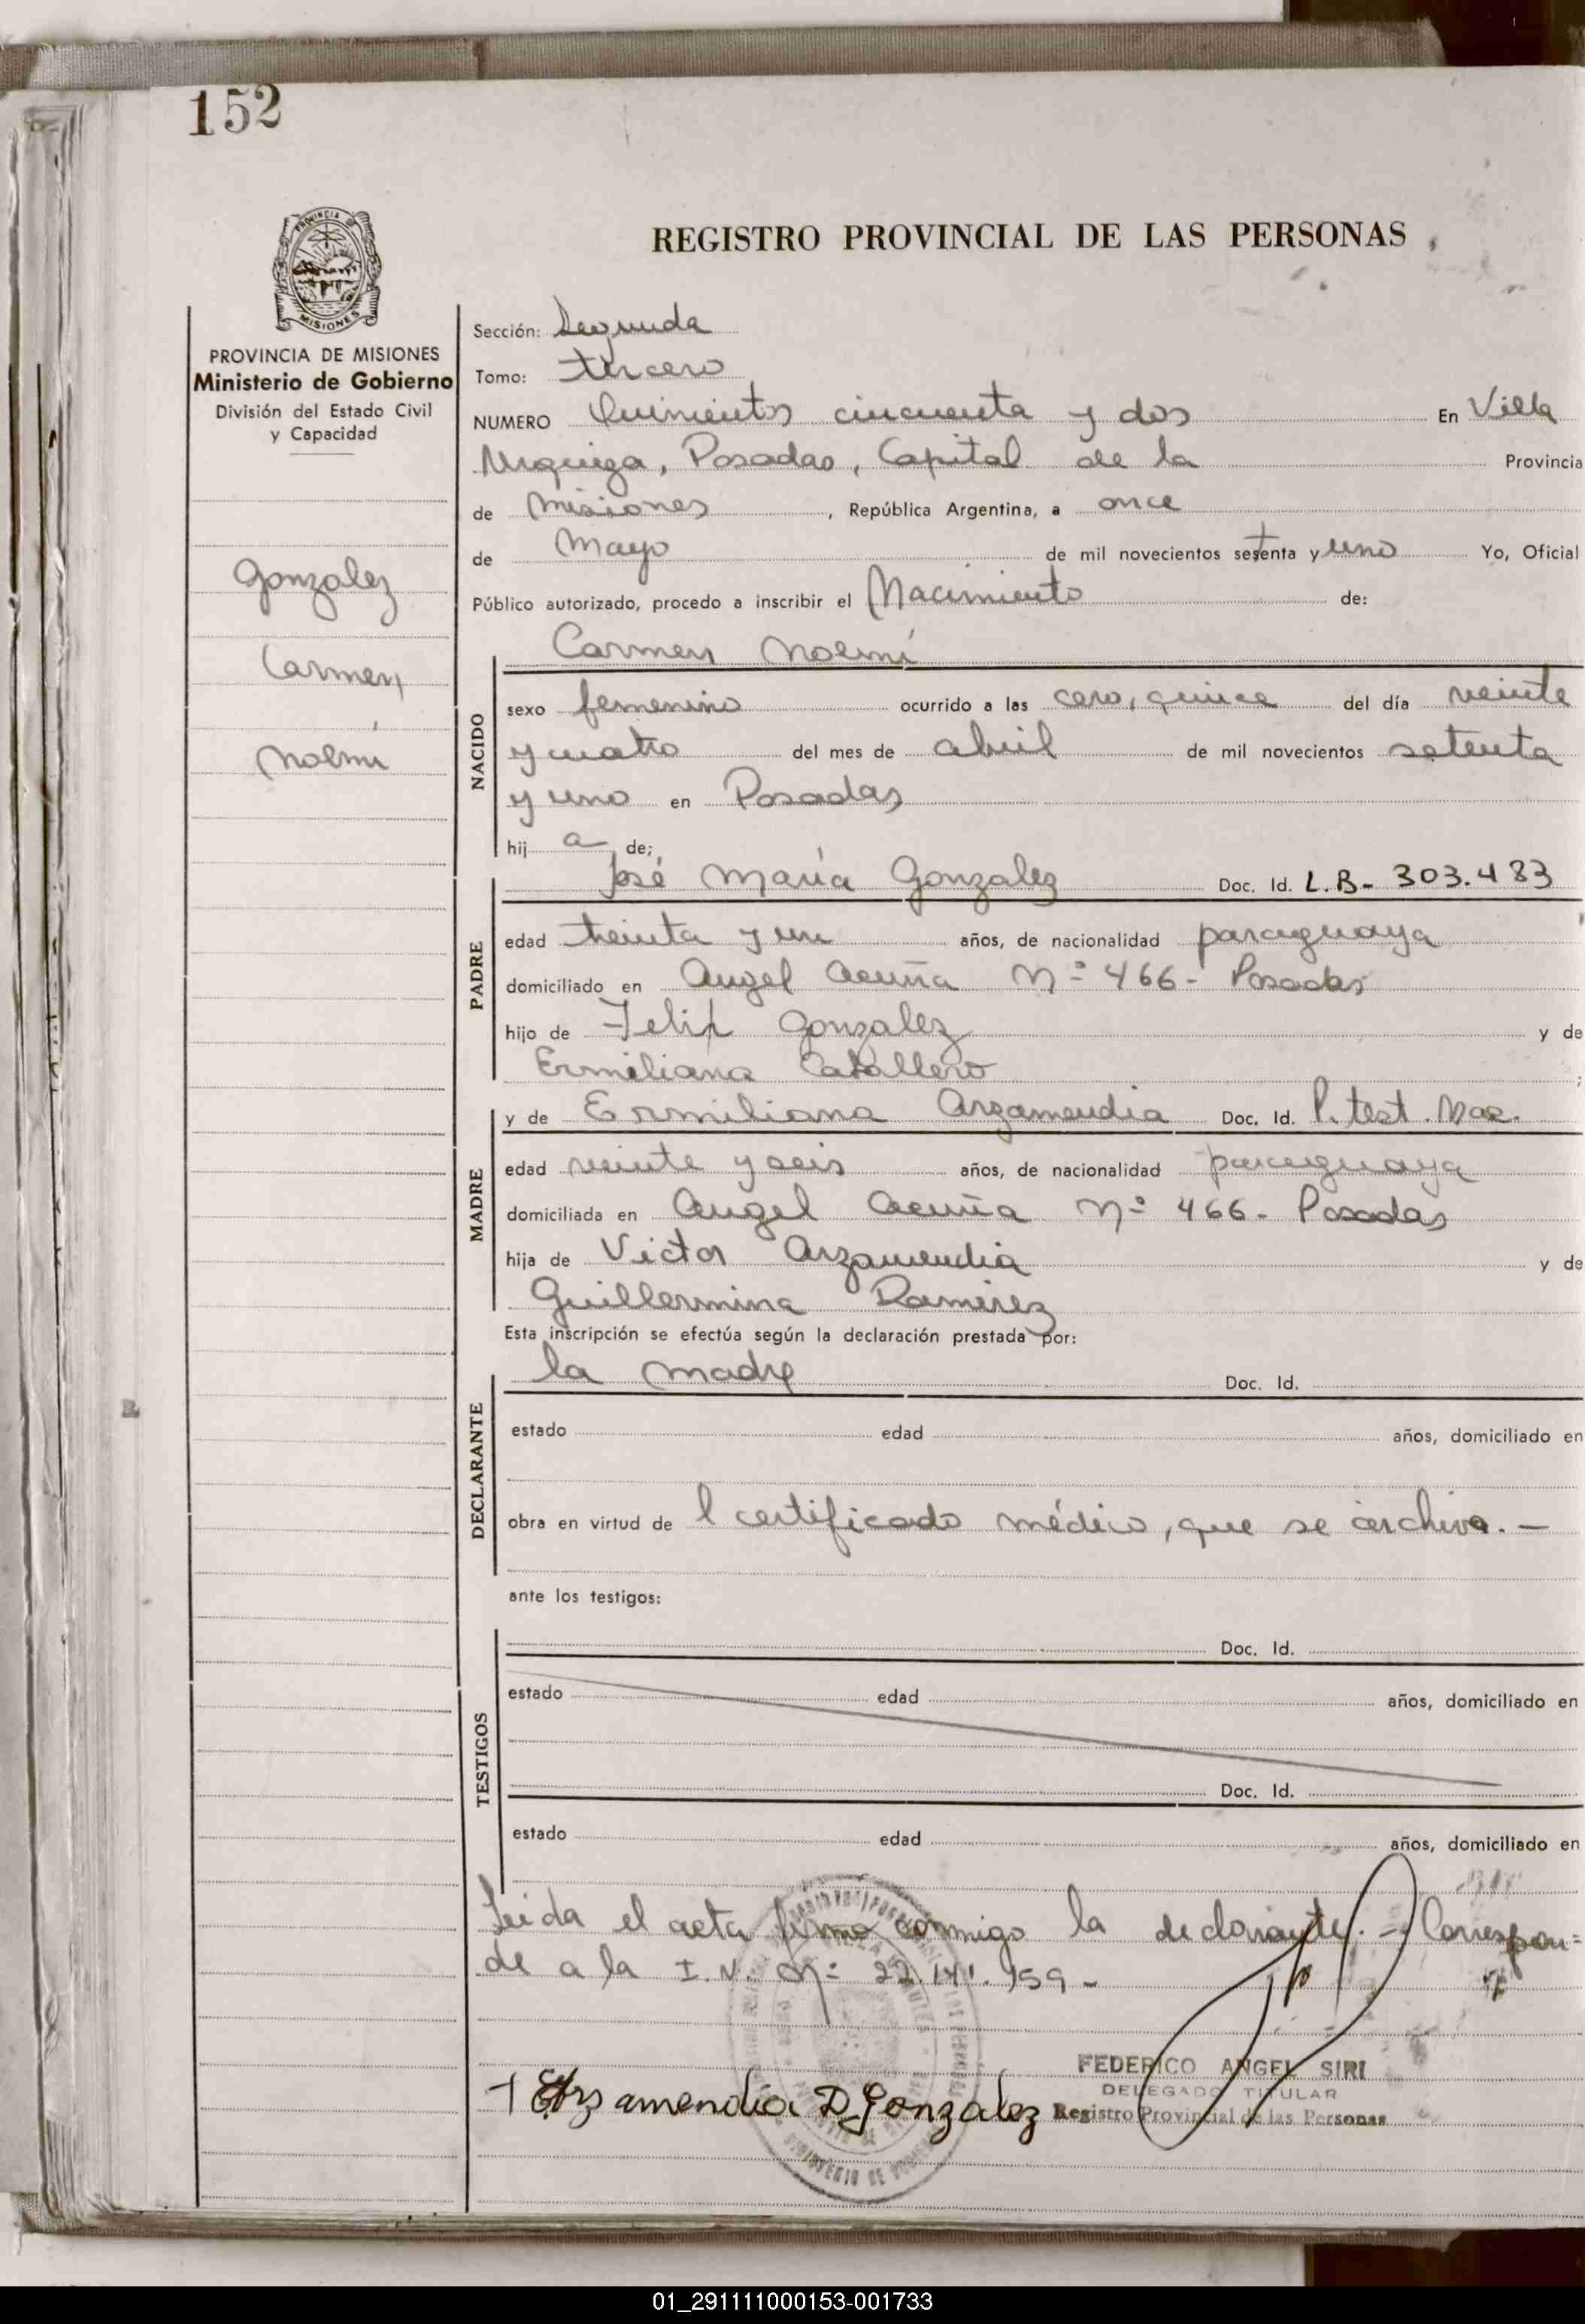 152
REGISTRO PROVINCIAL DE LAS PERSONAS
PROVINCIA
MISIONES
PROVINCIA DE MISIONES
Ministerio de Gobierno
División del Estado Civil
y Capacidad
Gonzalez
Carmen
Noemí
Sección: Segunda
Tomo: tercero
NUMERO Quinientos cincuenta y dos En Villa
Urquiza, Posadas, Capital de la Provincia
de Misiones, República Argentina, a once
de Mayo de mil novecientos setenta y uno Yo, Oficial
Público autorizado, procedo a inscribir el Nacimiento de:
Carmen Noemí
NACIDO
sexo femenino ocurrido a las cero, quince del día veinte
y cuatro del mes de abril de mil novecientos setenta
y uno en Posadas
hij a de;
José María Gonzalez Doc. Id. L.B- 303.483
PADRE
edad treinta y un años, de nacionalidad paraguaya
domiciliado en Angel Acuña Nº 466- Posadas
hijo de Felix Gonzalez y de
Ermiliana Caballero;
y de Ermiliana Arzamendia Doc. Id. P. test. Nac.
MADRE
edad veinte y seis años, de nacionalidad paraguaya
domiciliada en Angel Acuña Nº 466- Posadas
hija de Victor Arzamendia y de
Guillermina Ramirez
Esta inscripción se efectúa según la declaración prestada por:
la madre Doc. Id.
DECLARANTE
estado edad años, domiciliado en
obra en virtud de l certificado médico, que se archiva.-
ante los testigos:
Doc. Id.
TESTIGOS
estado edad años, domiciliado en
Doc. Id.
estado edad años, domiciliado en
Leida el acta firma conmigo la declarante.- Correspon=
de a la I.N. Nº 22.141.159-
FEDERICO ANGEL SIRI
DELEGADO TITULAR
Registro Provincial de las Personas
Arzamendia D Gonzalez
01_291111000153-001733